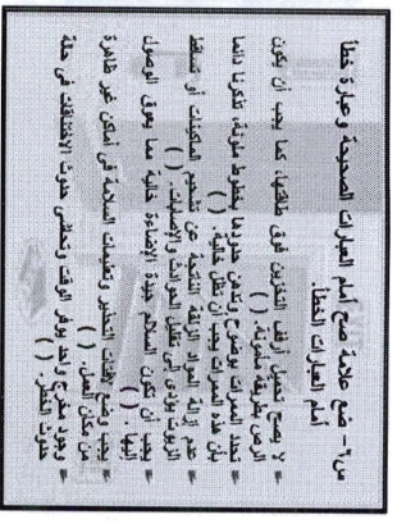 س٣- ضع علامة صح أمام العبارات الصحيحة وعبارة خطأ
أمام العبارات الخطأ.
لا يصح تحميل أرفف التخزين فوق طاقتها، كما يجب أن يكون
الرص بطريقة مأمونة. ( )
تحدد الممرات بوضوح وتدهن حدودها بخطوط ملونة، تذكرنا دائما
بأن هذه الممرات يجب أن تظل خالية. ( )
عدم إزالة المواد الزلقة الناتجة عن تشحيم الماكينات أو تساقط
الزيوت يؤدى إلى تقليل الحوادث والإصابات. ( )
يجب أن تكون السلالم جيدة الإضاءة خالية مما يعوق الوصول
إليها. ( )
يجب وضع لافتات التحذير وتعليمات السلامة فى أماكن غير ظاهرة
من مكان العمل. ( )
وجود مخرج واحد يوفر الوقت وتحاشى حدوث الاختناقات فى حالة
حدوث الخطر. ( )